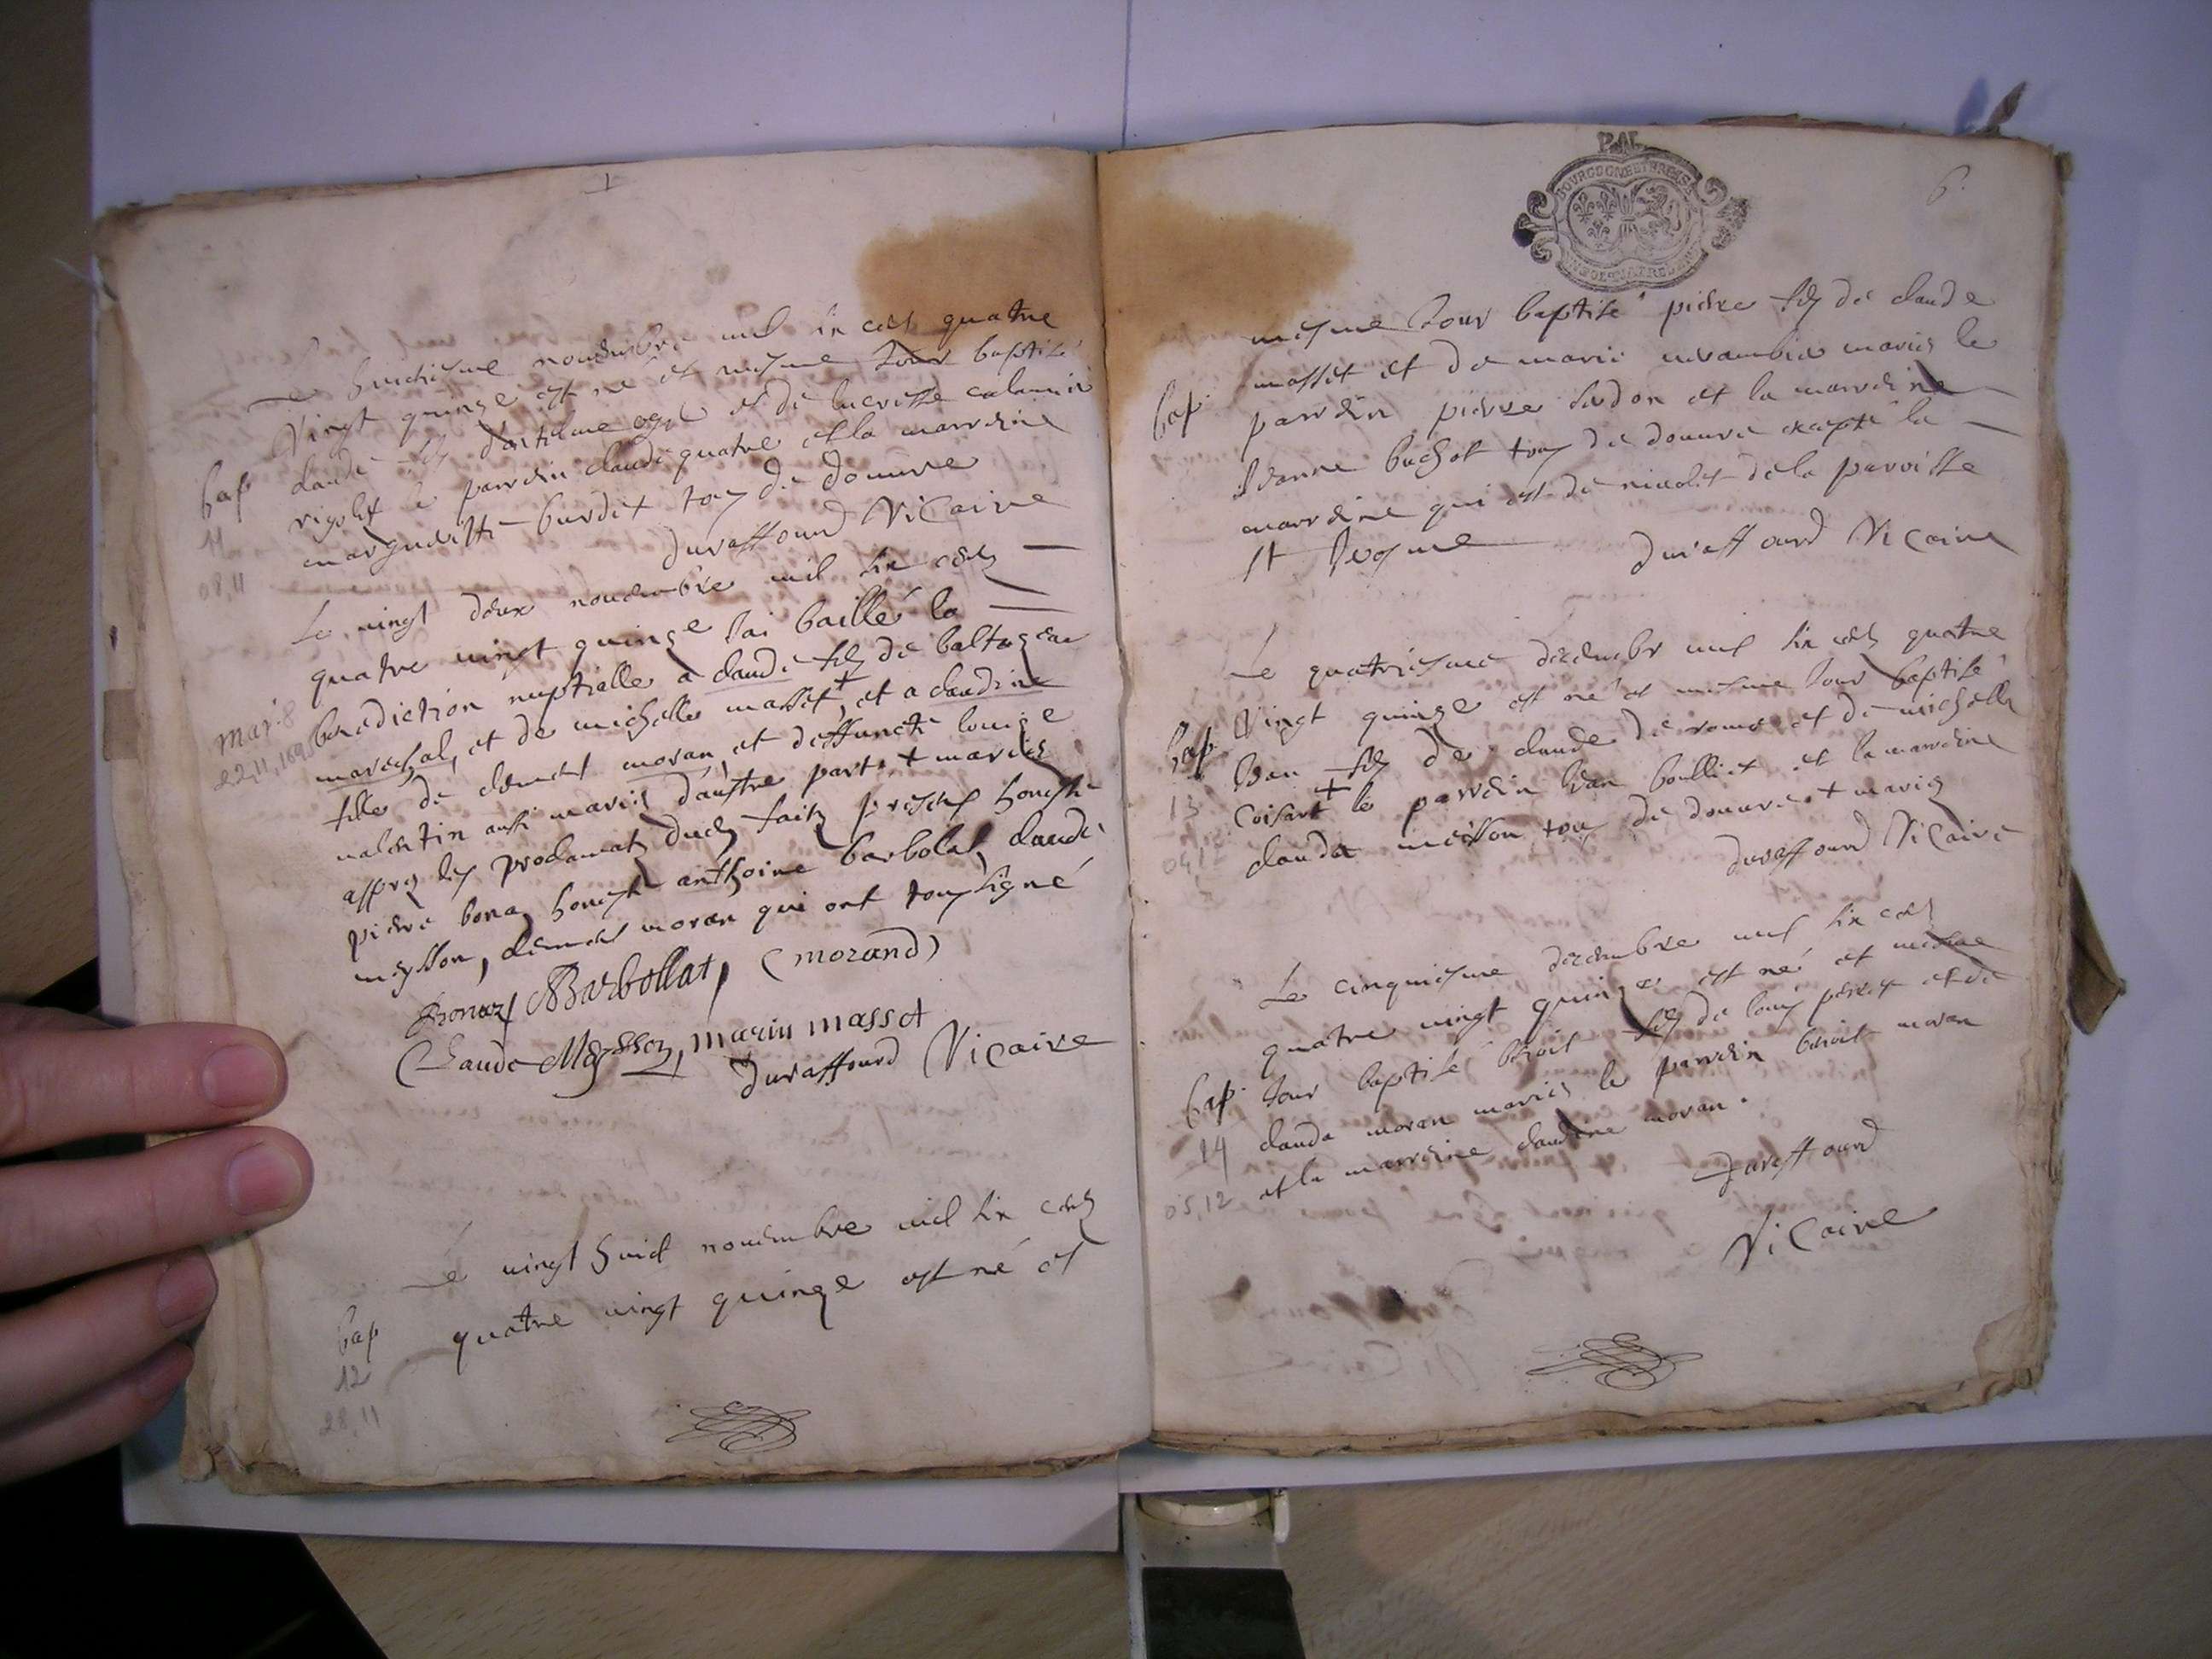 Le huictiesme nouembre mil six cens quatre
vingt quinze est né et mesme Jour baptisé
claude fils d'antelme et de lucresse
rigolet le parrein claude quatre et la marreine
margueritte burdet tous de douure
duraffourd Vicaire
bap
11
08,11
Le vingt deux nouembre mil six cens
quatre vingt quinze Jai baillé la
benediction nuptialle a claude fils de baltazar
mareschal, et de michelle masset + et a claudine
fille de clement moran, et deffuncte louise
valentin aussi mariés d'austre part + mariés
appres les proclamats deus faits presens honeste
pierre bonaz honeste anthoine barbolat, claude
meysson, clement moran qui ont tous signé
mar. 8
22,11,1695
Bonaz Barbollat, (morand)
Claude Meysson, marin masset
duraffourd Vicaire
Le vingt huict nouembre mil six cens
quatre vingt quinze est né et
bap
12
28,11
6.
P. AL
BOURGOGNE ET BRESSE
mesme Jour baptisé pierre fils de claude
masset et de marie mariés le
parrein pierre et la marreine
Jeanne buchot tous de douure excepté la
marreine qui est de niuolet de la paroisse
st
duraffourd Vicaire
bap.
Le quatriesme decembr mil six cens quatre
Vingt quinze est né et mesme Jour baptisé
Jean fils de claude de rome et de michelle
Coisart + le parrein Jean boulliet et la marreine
clauda meisson tous de douure + mariés
duraffourd Vicaire
bap.
13
04,12
Le cinquiesme decembre mil six cens
quatre vingt quinze est né et mesme
Jour baptisé benoit fils de louis peret et de
clauda moran mariés le parrein benoit moran
et la marreine claudine moran.
bap.
14
05,12
duraffourd
Vicaire